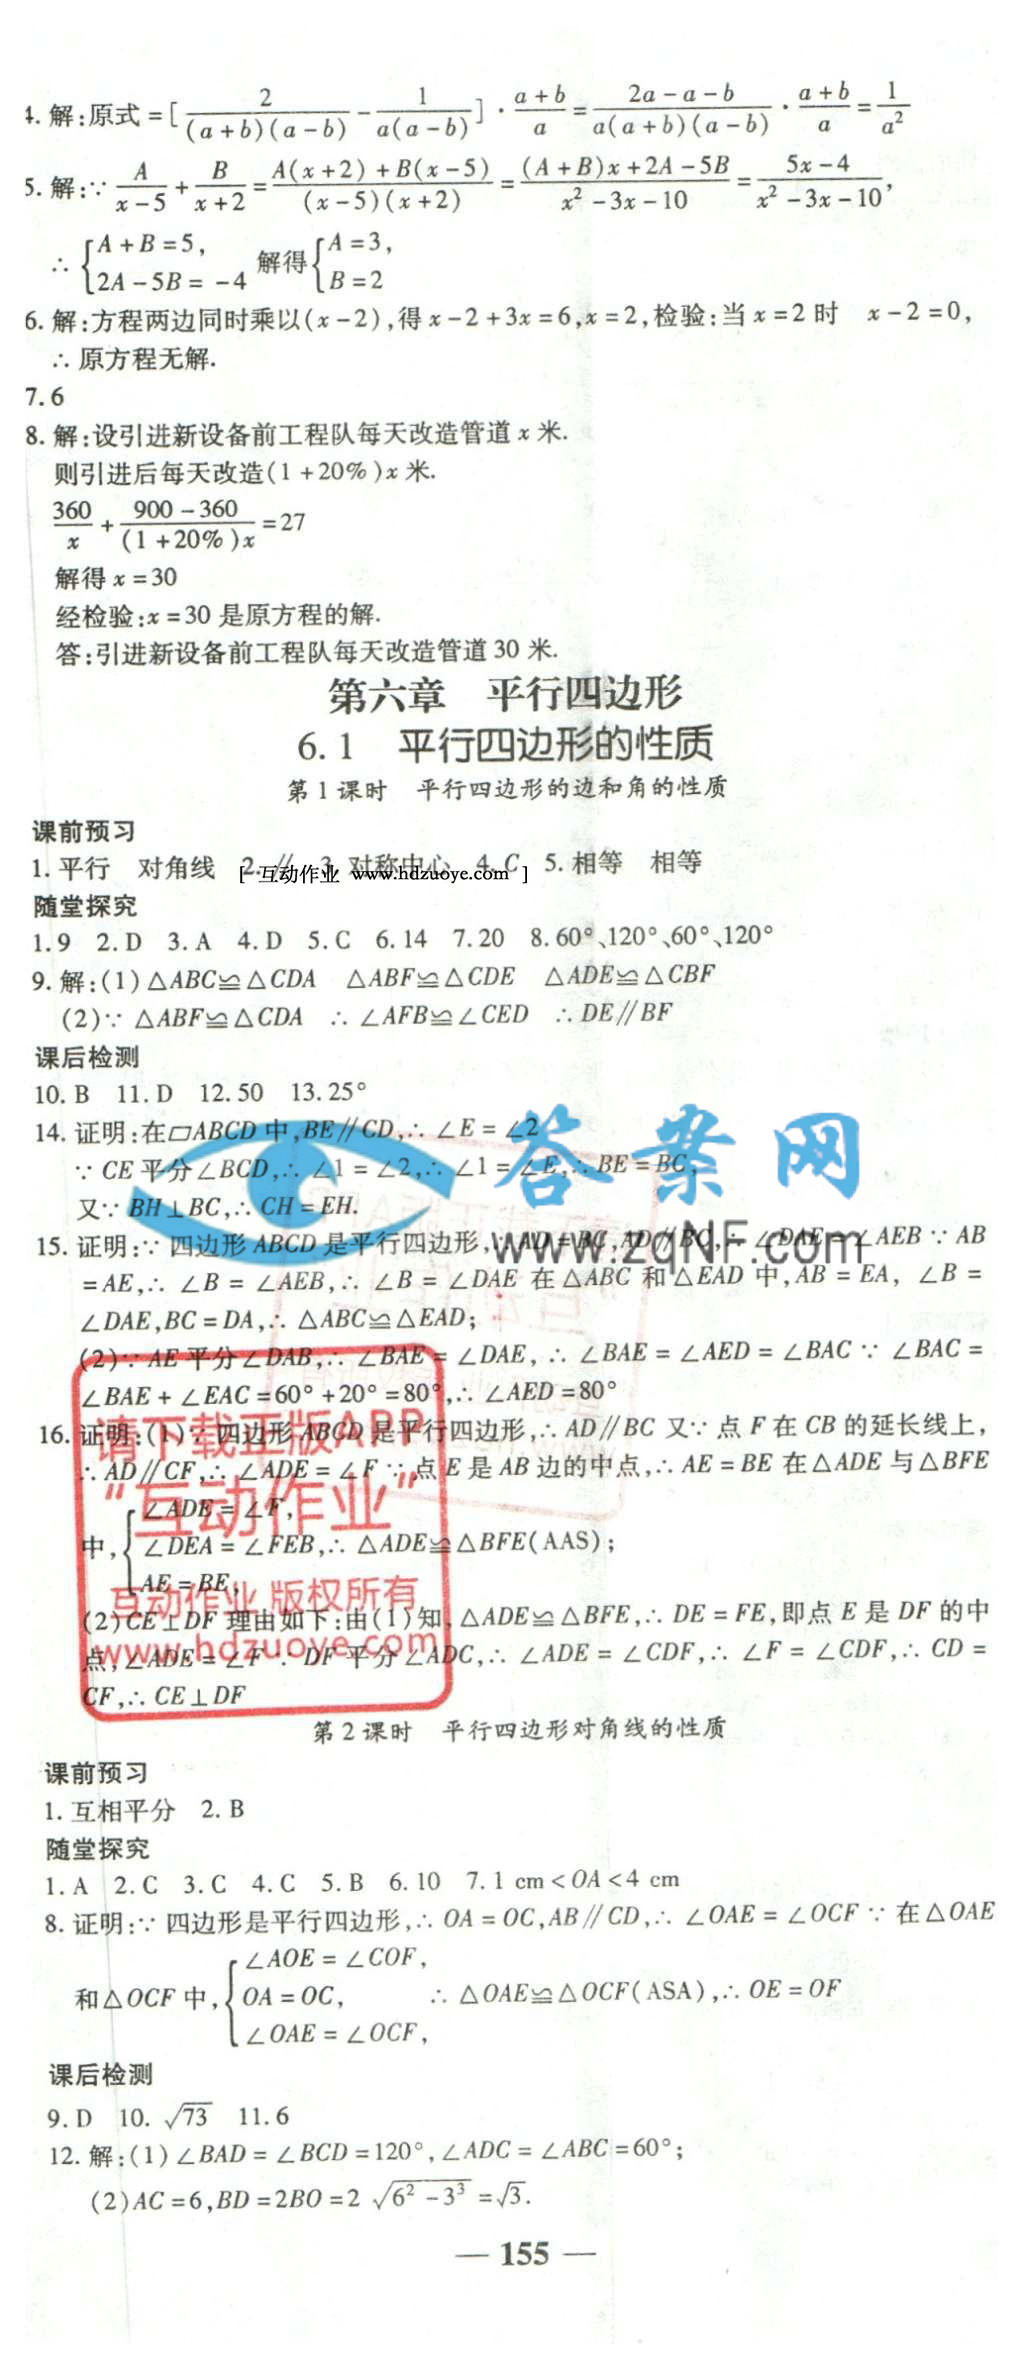 4. 解:原式=[2/((a+b)(a-b)) - 1/(a(a-b))]·(a+b)/a=(2a-a-b)/(a(a+b)(a-b))·(a+b)/a=1/a²
5. 解:∵ A/(x-5)+B/(x+2)=(A(x+2)+B(x-5))/((x-5)(x+2))=((A+B)x+2A-5B)/(x²-3x-10)=(5x-4)/(x²-3x-10),
∴ {A+B=5, 2A-5B=-4 解得{A=3, B=2
6. 解:方程两边同时乘以(x-2),得x-2+3x=6,x=2,检验:当x=2时 x-2=0,
∴ 原方程无解.
7. 6
8. 解:设引进新设备前工程队每天改造管道x米.
则引进后每天改造(1+20%)x米.
360/x+(900-360)/((1+20%)x)=27
解得x=30
经检验:x=30是原方程的解.
答:引进新设备前工程队每天改造管道30米.
第六章 平行四边形
6.1 平行四边形的性质
第1课时 平行四边形的边和角的性质
课前预习
1. 平行 对角线 2. ∥ 3. 对称中心 4. C 5. 相等 相等
[ 互动作业 www.hdzuoye.com ]
随堂探究
1. 9 2. D 3. A 4. D 5. C 6. 14 7. 20 8. 60°、120°、60°、120°
9. 解:(1)△ABC≌△CDA △ABF≌△CDE △ADE≌△CBF
(2)∵ △ABF≌△CDA ∴ ∠AFB≌∠CED ∴ DE∥BF
课后检测
10. B 11. D 12. 50 13. 25°
14. 证明:在▱ABCD中,BE∥CD,∴ ∠E=∠2
∵ CE平分∠BCD,∴ ∠1=∠2,∴ ∠1=∠E,∴ BE=BC,
又∵ BH⊥BC,∴ CH=EH.
答案网
www.zqNF.com
15. 证明:∵ 四边形ABCD是平行四边形,∴ AD=BC,AD∥BC,∴ ∠DAE=∠AEB ∵ AB
=AE,∴ ∠B=∠AEB,∴ ∠B=∠DAE 在△ABC和△EAD中,AB=EA, ∠B=
∠DAE,BC=DA,∴ △ABC≌△EAD;
(2)∵ AE平分∠DAB,∴ ∠BAE=∠DAE, ∴ ∠BAE=∠AED=∠BAC ∵ ∠BAC=
∠BAE+∠EAC=60°+20°=80°,∴ ∠AED=80°
16. 证明:(1)∵ 四边形ABCD是平行四边形,∴ AD∥BC 又∵ 点F在CB的延长线上,
∴ AD∥CF,∴ ∠ADE=∠F ∵ 点E是AB边的中点,∴ AE=BE 在△ADE与△BFE
中,{∠ADE=∠F, ∠DEA=∠FEB, AE=BE, ∴ △ADE≌△BFE(AAS);
(2)CE⊥DF 理由如下:由(1)知,△ADE≌△BFE,∴ DE=FE,即点E是DF的中
点,∠ADE=∠F ∵ DF平分∠ADC,∴ ∠ADE=∠CDF,∴ ∠F=∠CDF,∴ CD=
CF,∴ CE⊥DF
请下载正版APP
“互动作业”
互动作业 版权所有
www.hdzuoye.com
第2课时 平行四边形对角线的性质
课前预习
1. 互相平分 2. B
随堂探究
1. A 2. C 3. C 4. C 5. B 6. 10 7. 1 cm<OA<4 cm
8. 证明:∵ 四边形是平行四边形,∴ OA=OC,AB∥CD,∴ ∠OAE=∠OCF ∵ 在△OAE
和△OCF中,{∠AOE=∠COF, OA=OC, ∠OAE=∠OCF, ∴ △OAE≌△OCF(ASA),∴ OE=OF
课后检测
9. D 10. √73 11. 6
12. 解:(1)∠BAD=∠BCD=120°,∠ADC=∠ABC=60°;
(2)AC=6,BD=2BO=2√(6²-3³)=√3.
— 155 —